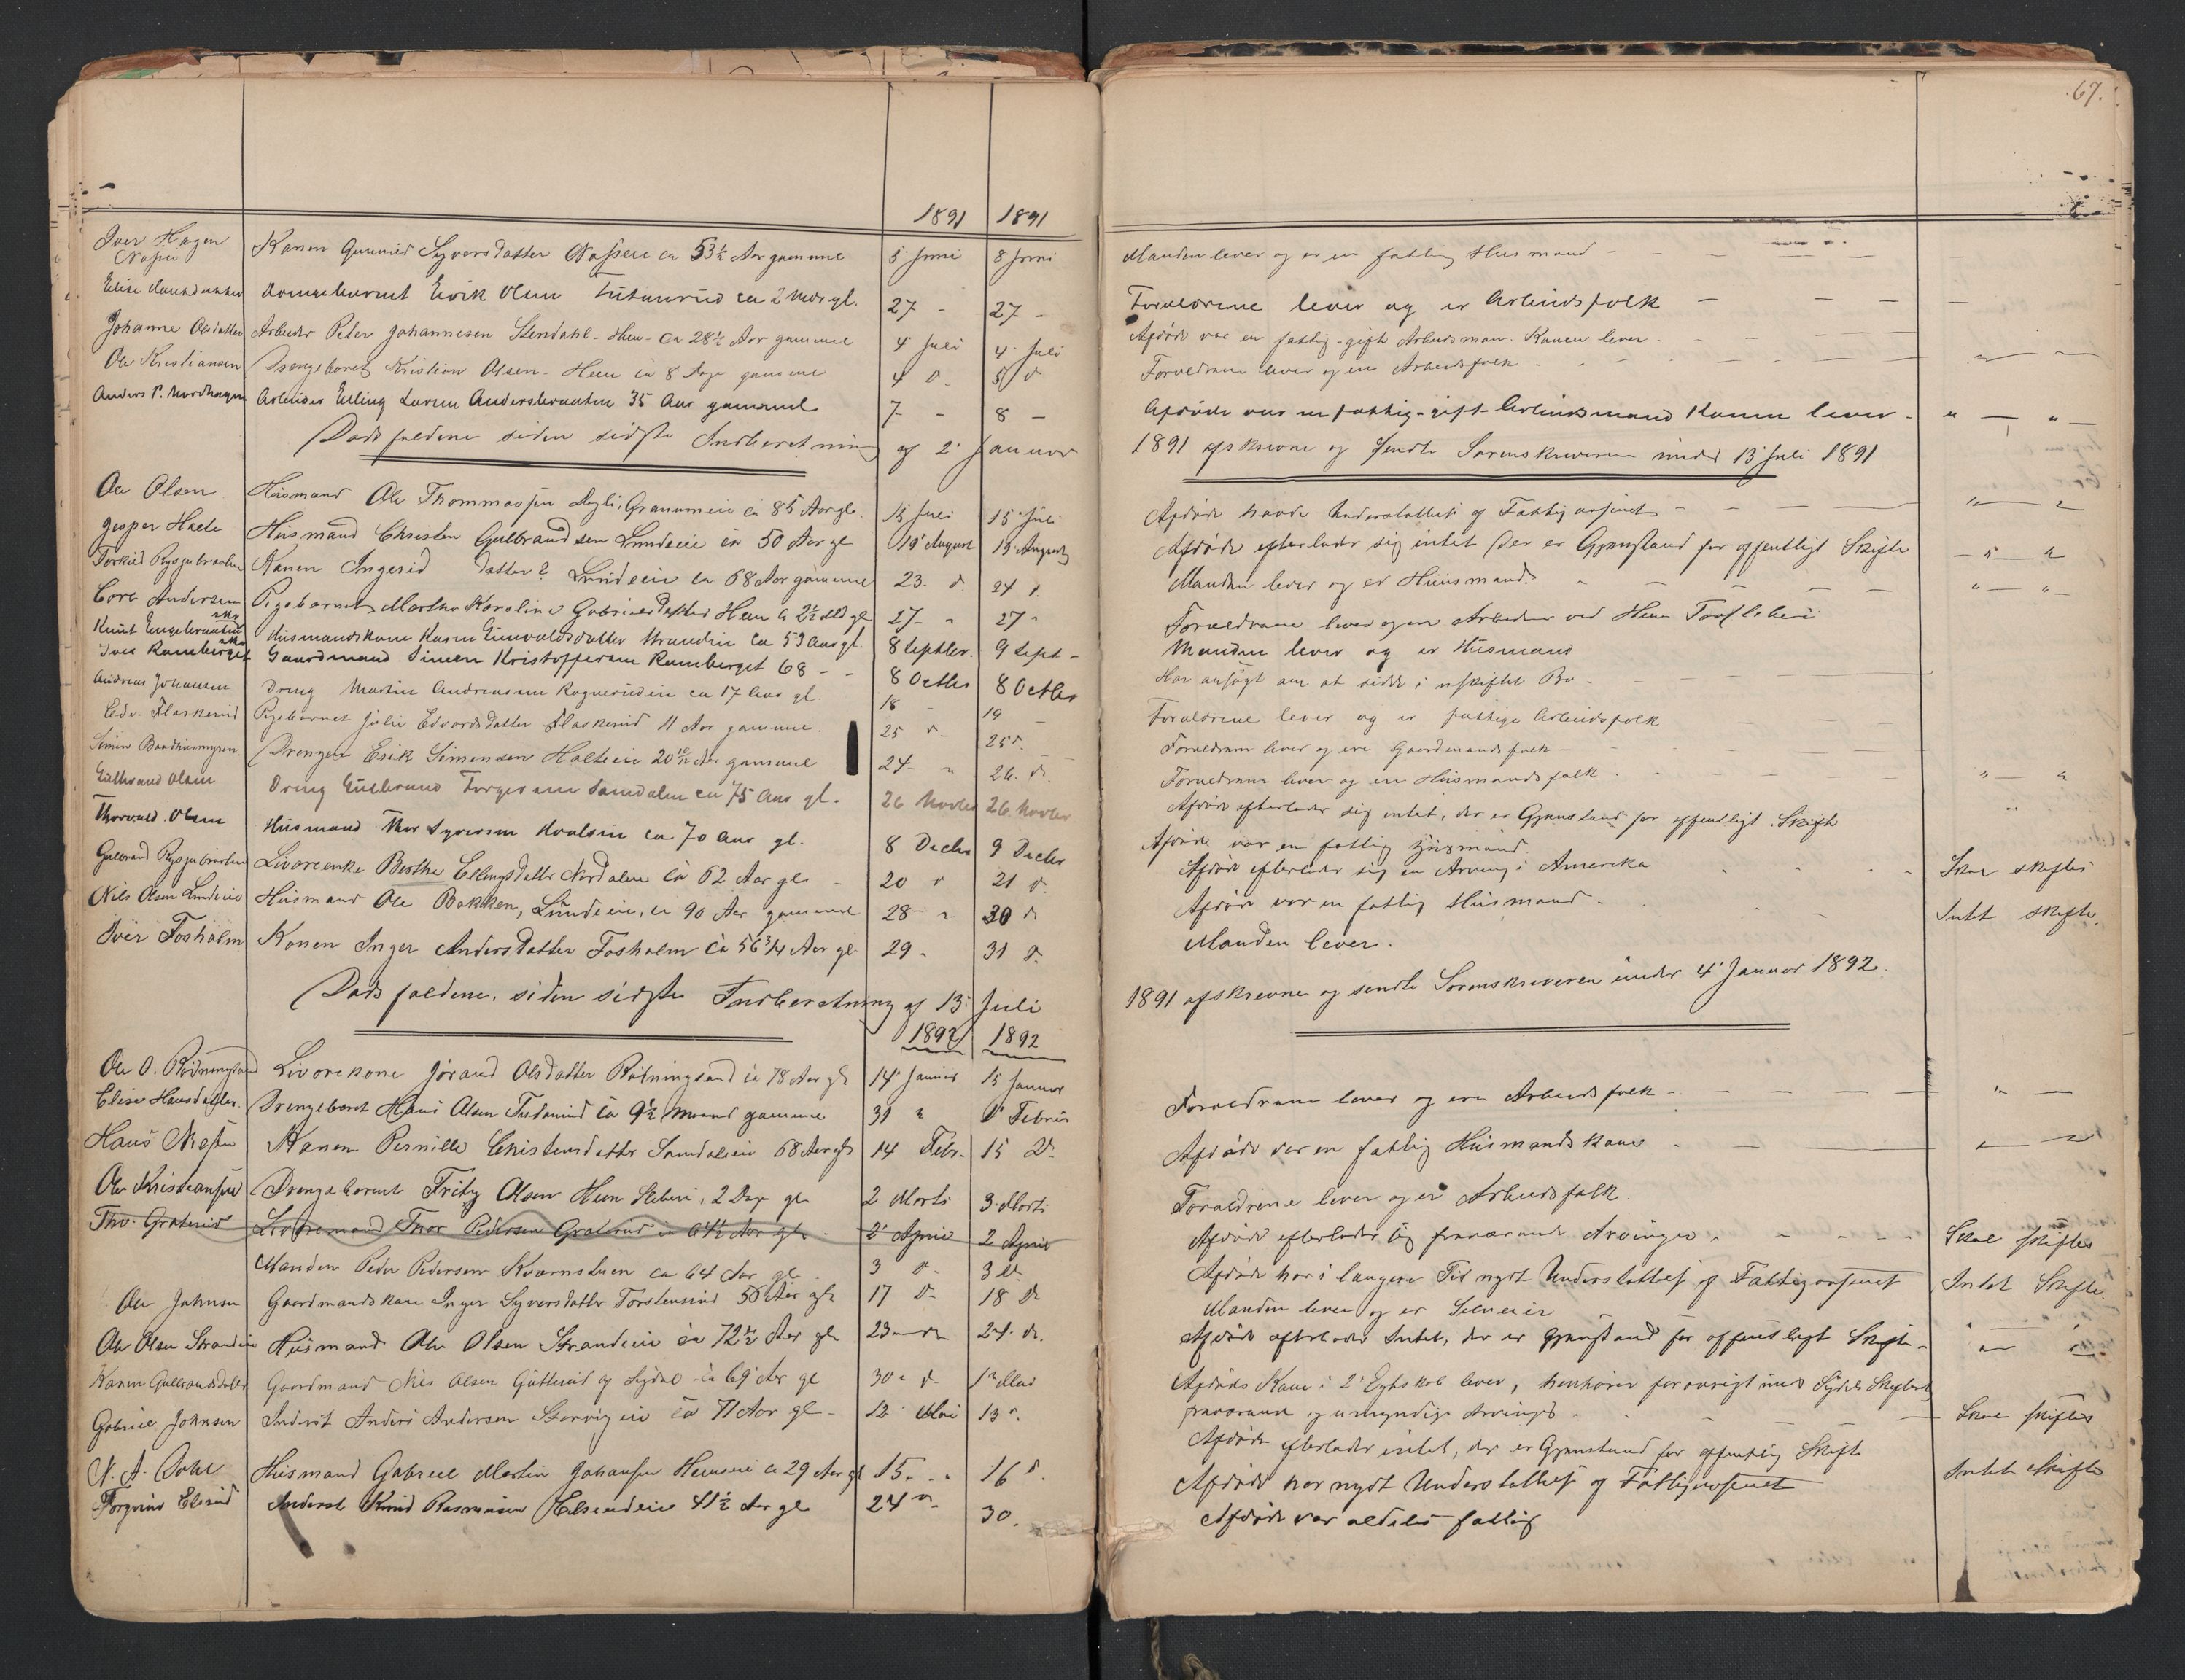 67.
1891 1891
Iver Hagen Konen Gunnild Syversdatter Naspeie ca 53½ Aar gammel 5 Juni 8 Juni Manden lever og er en fattig Husmand - - - -
Naspeie
Elise Drengebarnet Eivik Olsen Tutanrud ca 2 Mdr gl. 27 - 27 - Forældrene lever og er Arbeidsfolk - - - -
Johanne Olsdatter Arbeider Peder Johannesen Stendahl - Hen - ca 28½ Aar gammel 4 Juli 4 Juli Afdøde var en fattig - gift Arbeidsman. Konen lever -
Ole Kristiansen Drengebarnet Kristian Olsen - Hen ca 8 Dage gammel 4 d. 5 d Forældrene lever og ere Arbeidsfolk -
Anders P. Nordhagen Arbeider Elling Larsen Andersbraaten 35 Aar gammel 7 - 8 - Afdøde var en fattig - gift Arbeidsmand Konen lever - " — " —
Dødsfaldene siden sidste Indberetning af 2' Januar 1891 afskrevne og sendte Sorenskriveren under 13 Juli 1891
Ole Olsen Husmand Ole Thommassen Granumeie ca 85 Aar gl. 15 Juli 15 Juli Afdøde havde Understøttelse af Fattigvæsenet - - - " — "
Jesper Husmand Christen Gulbrandsen Lundeeie ca 50 Aar gl 19 August 19 August Afdøde efterlader sig intet der er Gjenstand for offentligt Skifte
Torkild Rygsjebraaten Konen Ingerid Datter? Lundeeie ca 68 Aar gammel 23. d 24 d. Manden lever og er Huusmand. - - - " — " -
Core Andersen Pigebarnet Martha Karoline Gabrielsdatter Hen ca 2½ Md gl 27 - " 27 " Forældrene lever og ere Arbeidere ved Hen Træsliberi
Knut Engebraaten Husmandskone Karen Gunvaldsdatter Strandeie ca 53 Aar gl. 8 Septbr. 9 Sept - Manden lever og er Husmand
Iver Ramberget Gaardmand Simen Kristoffersen Ramberget 68 - - 8 Octber 8 Octber Har ansøgt om at sidde i uskiftet Bo -
Andreas Johansen Dreng Martin Andreasen Rognerudeie ca 17 Aar gl. 18 - 19 - Forældrene lever og er fattige Arbeidsfolk
Edv. Flaskerud Pigebarnet Julie Edvardsdatter Flaskerud 11 Aar gammel. 25 d. 25 d. Forældrene lever og ere Gaardmandsfolk -
Simen Drengen Erik Simensen Holteeie 20 Aar gammel 24 - " 26. d. Forældrene lever og er Husmandsfolk - - - " "
Gulbrand Olsen Dreng Gulbrand Torgersen Samdalen ca 75 Aar gl. 26 Novber 26. Novber Afdøde efterlader sig intet, der er Gjenstand for offentligt Skifte
Thorvald Olsen Husmand Thor Syversen Kvalseie ca 70 Aar gl. 8 Decber 9 Decber Afdøde var en fattig Husmand
Gulbrand Rygsjebraaten Livøreenke Berthe Ellingsdatter Nordalen ca 62 Aar gl - 20 d 21 d. Afdøde efterlader sig en Arving i Amerika Skal skiftes
Nils Olsen Lundeeie Husmand Ole Bakken, Lundeeie, ca 90 Aar gammel 28 - " 30 d Afdøde var en fattig Husmand - Intet skifte.
Iver Fosholm Konen Inger Andersdatter Fosholm ca 56¾ Aar gl 29 - 31 d. Manden lever.
Dødsfaldene, siden sidste Indberetning af 13' Juli 1891 afskrevne og sendte Sorenskriveren under 4' Januar 1892.
1892 1892
Ole O. Livørekone Jørand Olsdatter ca 78 Aar gl 14' Januar 15 Januar
Elise Hansdatter. Drengebarnet Hans Olsen Tutanrud ca 9½ Maand gammel 31 " 1' Februar Forældrene lever og ere Arbeidsfolk - - - " —
Hans Konen Pernille Christensdatter Samdaleeie 68 Aar gl 14 Febr. 15 D. Afdøde var en fattig Husmandskone -
Ole Kristiansen Drengebarnet Fritz Olsen Hen Sliberi, 2 Dage gl 2 Marts 3. Marts Forældrene lever og er Arbeidsfolk.
Tho. Graterud Livøremand Thor Pedersen Graterud ca 64½ Aar gl. 2' April 2 April Afdøde efterlader sig fraværende Arvinger. Skal skiftes
Manden Peder Pedersen Kværnstuen ca 64 Aar gl 3 d. 3 d. Afdøde har i længere Tid nydt Understøttelse af Fattigvæsenet Intet Skifte.
Ole Johnsen Gaardmandskone Inger Syversdatter Torstensrud 56 Aar gl 17 D. 18 D. Manden lever og er Selveier
Ole Olsen Strandeie Husmand Ole Olsen Strandeie ca 72½ Aar gl 23 - d. 24. d. Afdøde efterlader Intet, der er Gjenstand for offentligt Skifte -
Karen Gulbrandsdatter Gaardmand Nils Olsen Gutterud af Sigdal ca 69 Aar gl 30 " d 1' Mai Afdødes Kone i 2' Egteskab lever, henhører forøvrigt und Sigdals
fraværende og umyndige Arvinge - Skal skiftes
Gabriel Johnsen Inderst Anders Andersen Storvigeie ca 71 Aar gl - 12' Mai 13 d. Afdøde efterlader intet, der er Gjenstand for offentlig Skifte
N. A. Dahl Husmand Gabriel Martin Johansen Henseie ca 29 Aar gl 15. - " 16 d. Afdøde har nydt Understøttelse af Fattigvæsenet Intet Skifte
Torgrim Elsrud Inderst Knud Rasmussen Elsrudeie 41½ Aar gl 24 d. 30. Afdøde var aldeles fattig